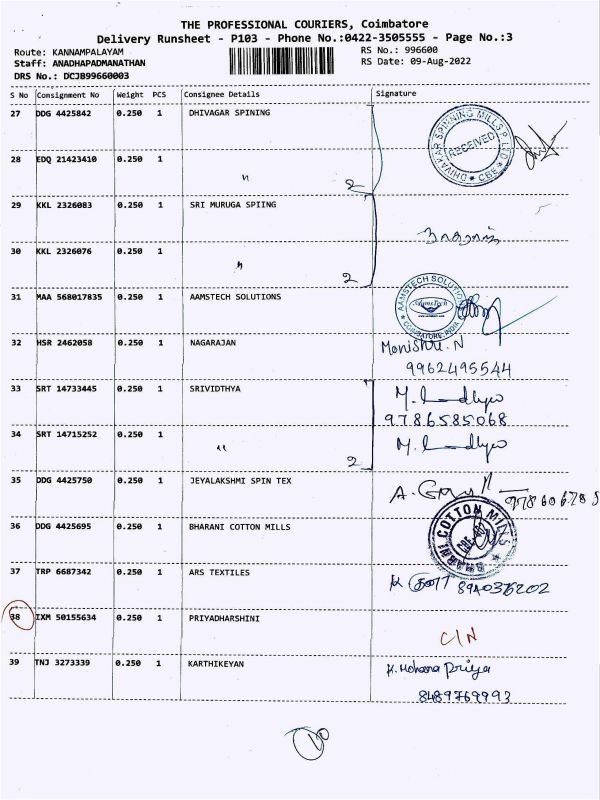 THE PROFESSIONAL COURIERS, Coimbatore
Delivery Runsheet - P103 - Phone No.:0422-3505555 - Page No.:3
Route: KANNAMPALAYAM RS No.: 996600
Staff: ANADHAPADMANATHAN RS Date: 09-Aug-2022
DRS No.: DCJB99660003
S No Consignment No Weight PCS Consignee Details Signature
27 DDG 4425842 0.250 1 DHIVAGAR SPINING
DHIVAKAR SPINNING MILLS P LTD
RECEIVED
* CBE *
28 EDQ 21423410 0.250 1 〃
2
29 KKL 2326083 0.250 1 SRI MURUGA SPIING
30 KKL 2326076 0.250 1 〃
2
31 MAA 568017835 0.250 1 AAMSTECH SOLUTIONS
AAMSTECH SOLUTIONS
AamsTech
COIMBATORE, INDIA
32 HSR 2462058 0.250 1 NAGARAJAN Monishri. N
9962495544
33 SRT 14733445 0.250 1 SRIVIDTHYA
9786585068
34 SRT 14715252 0.250 1 〃
2
35 DDG 4425750 0.250 1 JEYALAKSHMI SPIN TEX
36 DDG 4425695 0.250 1 BHARANI COTTON MILLS
BHARANI COTTON MILLS
37 TRP 6687342 0.250 1 ARS TEXTILES
38 IXM 50155634 0.250 1 PRIYADHARSHINI C/N
39 TNJ 3273339 0.250 1 KARTHIKEYAN K. Mohana priya
8489769993
10